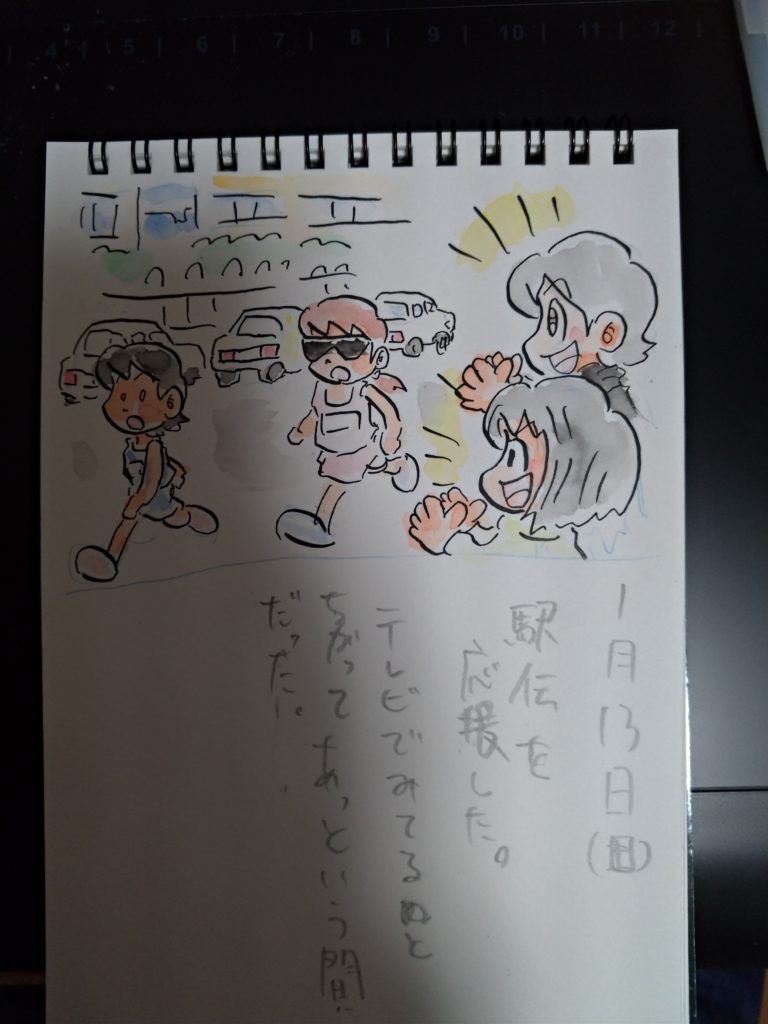 4 5 6 7 8 9 10 11 12
1月13日(日)
駅伝を
応援した。
テレビでみてるのと
ちがってあっという間
だった。